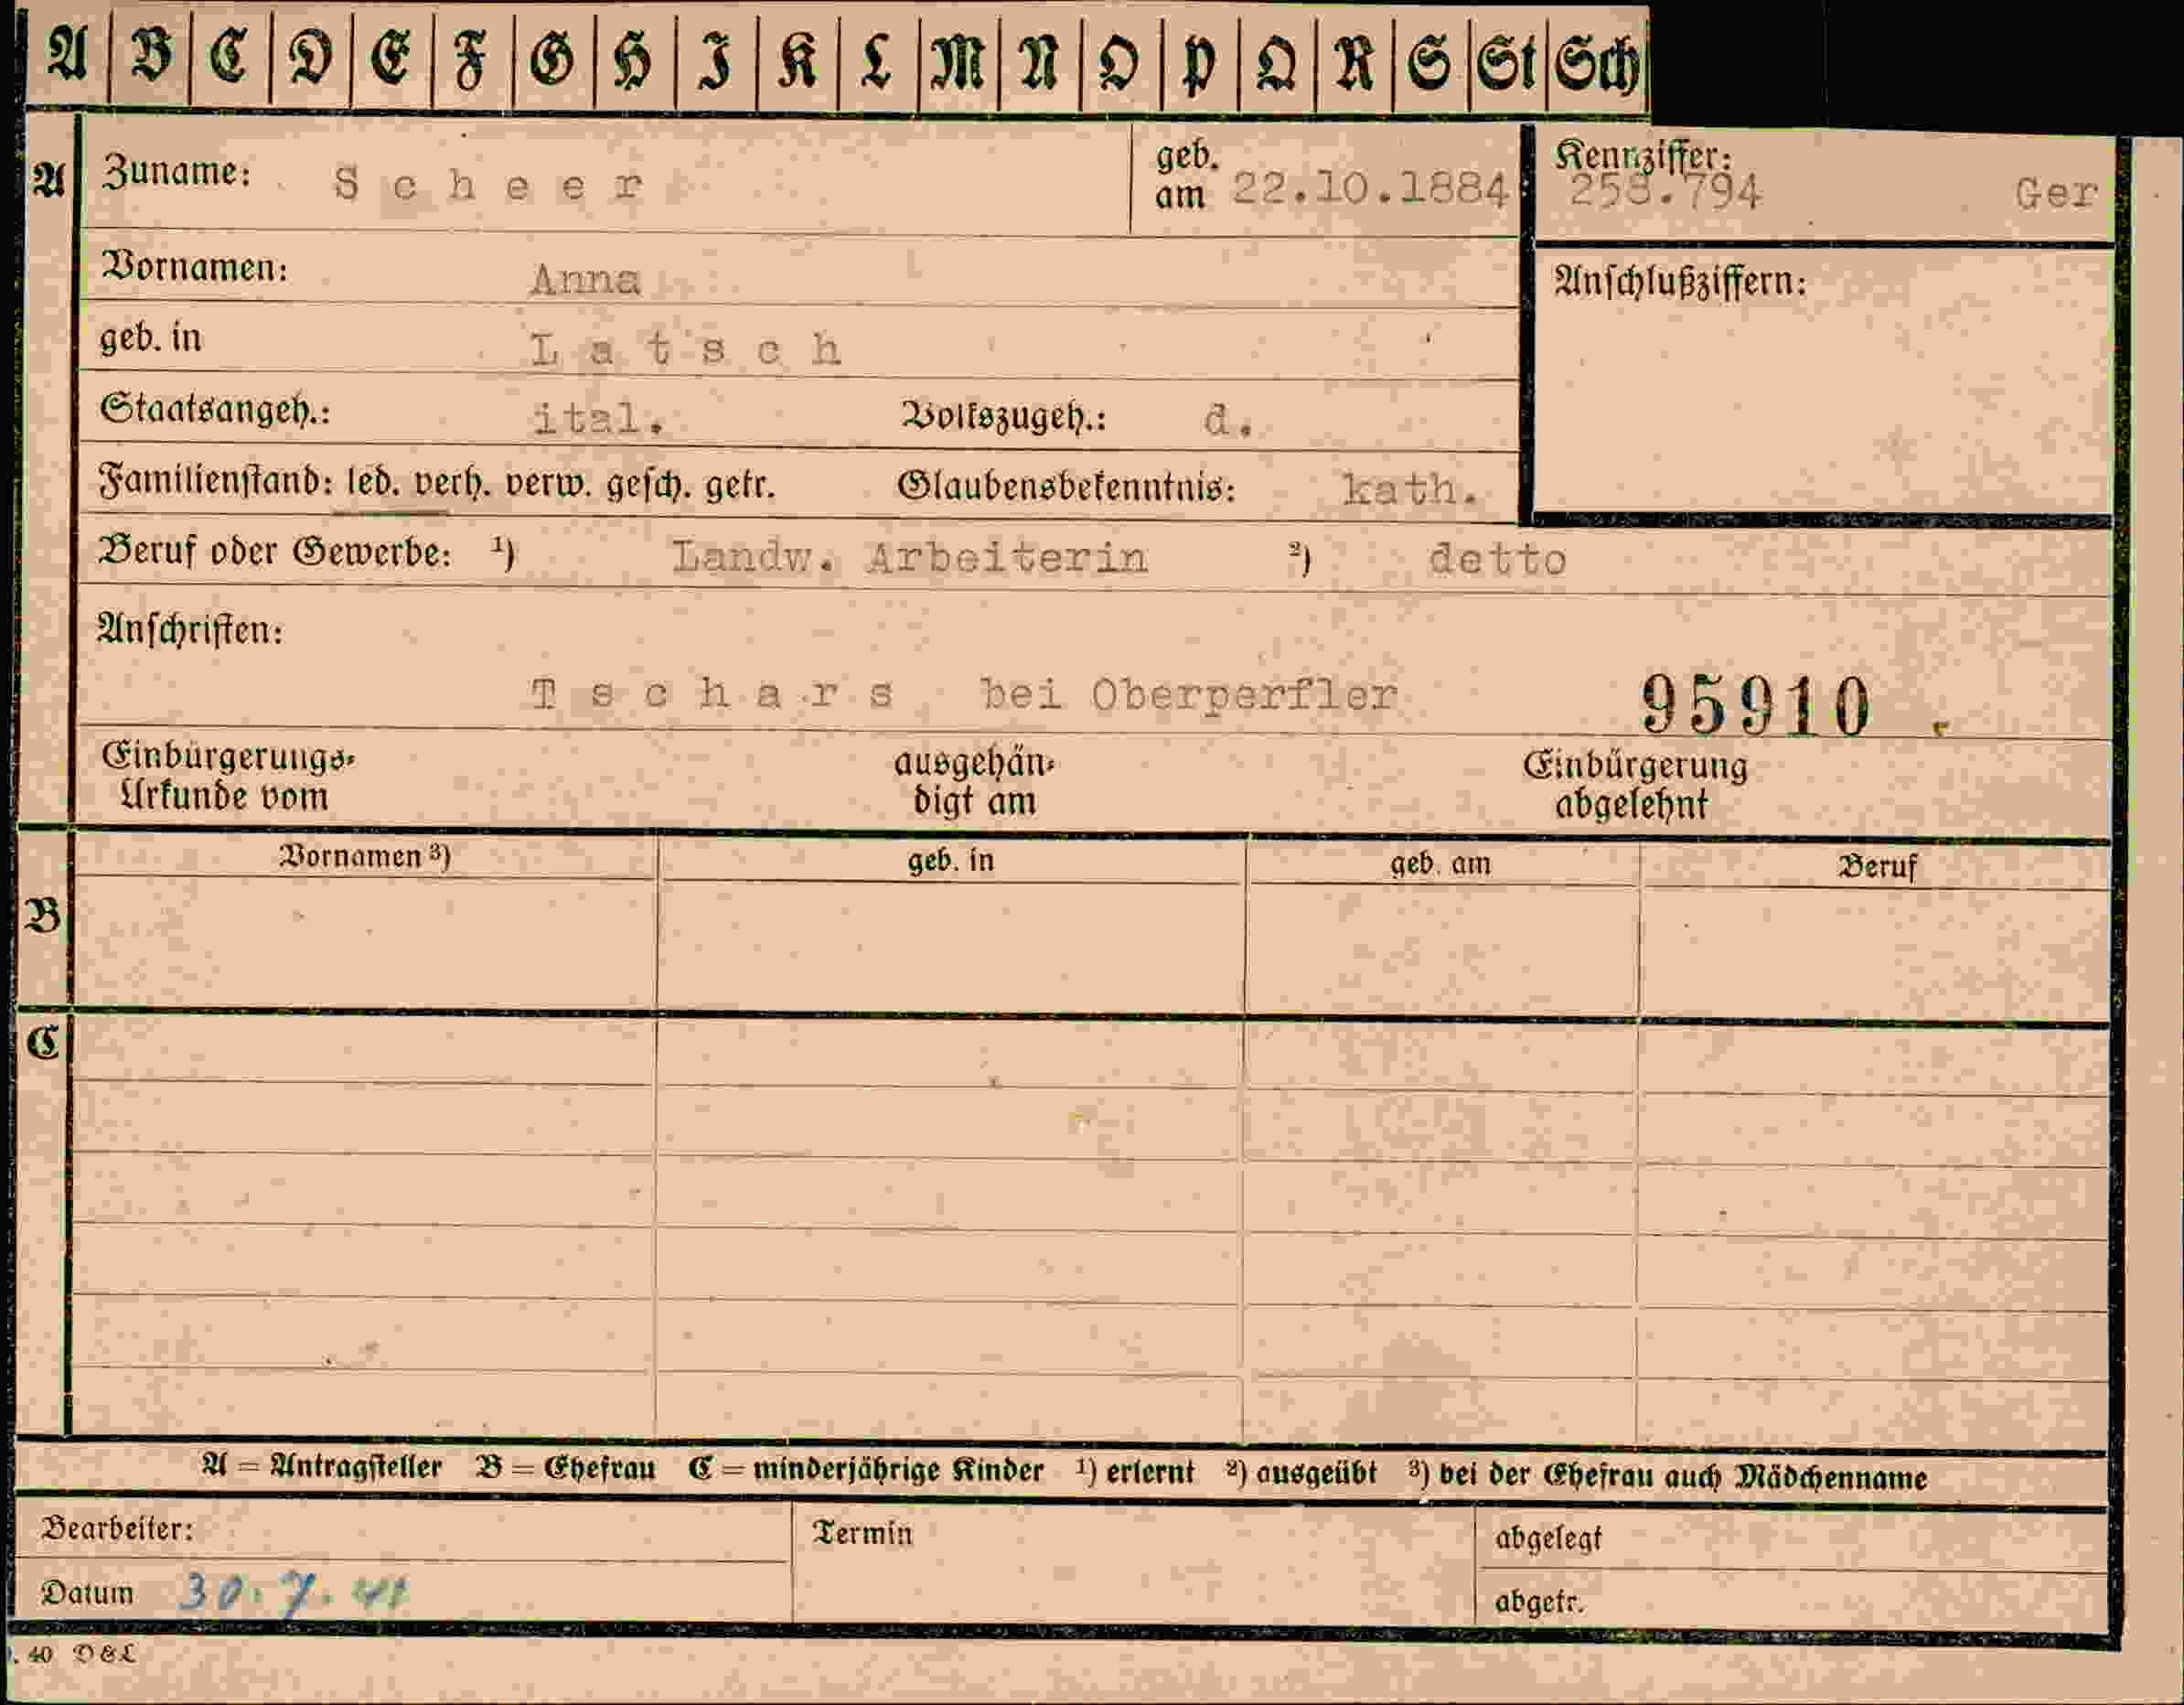 A B C D E F G H I K L M N O P Q R S St Sch
A Zuname: Scheer geb. am 22.10.1884 Kennziffer: 258.794 Ger
Vornamen: Anna Anschlußziffern:
geb. in Latsch
Staatsangeh.: ital. Volkszugeh.: d.
Familienstand: led. verh. verw. gesch. getr. Glaubensbekenntnis: kath.
Beruf oder Gewerbe: 1) Landw. Arbeiterin 2) detto
Anschriften:
Tschars bei Oberperfler 95910
Einbürgerungs- ausgehän- Einbürgerung
Urkunde vom digt am abgelehnt
Vornamen 3) geb. in geb. am Beruf
B
C
A = Antragsteller B = Ehefrau C = minderjährige Kinder 1) erlernt 2) ausgeübt 3) bei der Ehefrau auch Mädchenname
Bearbeiter: Termin abgelegt
Datum 30.7.41 abgetr.
. 40 D&L